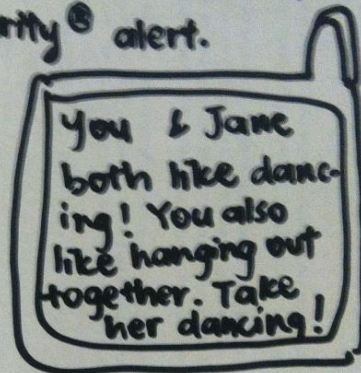 alert.
You & Jane
both like danc-
ing! You also
like hanging out
together. Take
her dancing!